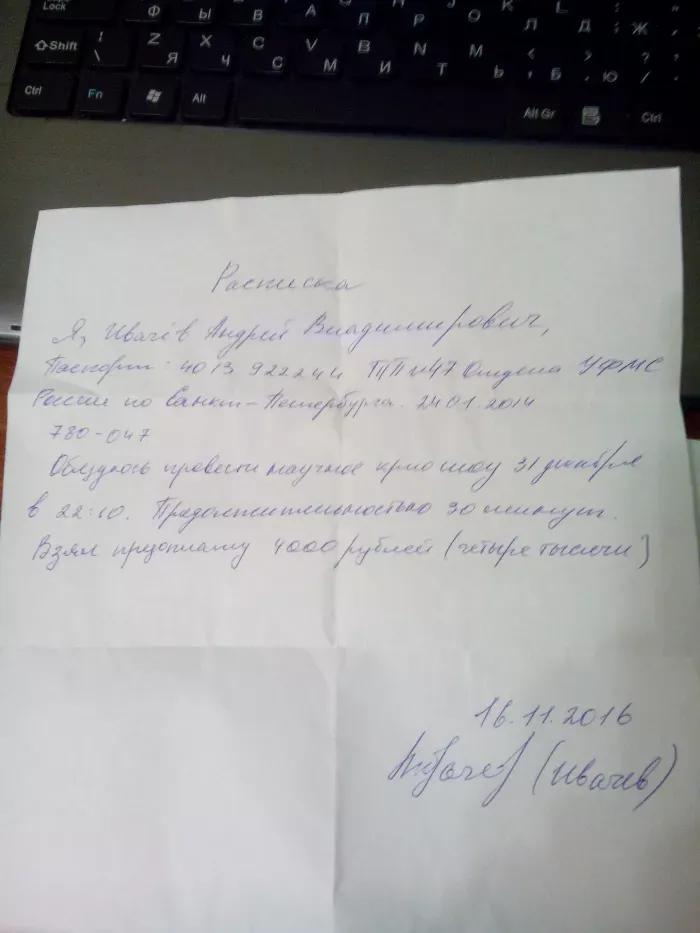 Lock Ф Ы В А П Р О Л Д Ж
Shift \ Z Я X Ч C С V М B И N Т M Ь < , Б > . Ю ? /
Ctrl Fn Alt Alt Gr Ctrl
Расписка
Я, Ивачёв Андрей Владимирович,
Паспорт: 4013 922244 ТП №47 Отдела УФМС
России по Санкт-Петербурга. 24.01.2014
780-047
Обязуюсь провести научное крио шоу 31 декабря
в 22:10. Продолжительностью 30 минут.
Взял предоплату 4000 рублей (четыре тысячи)
16.11.2016
(Ивачев)